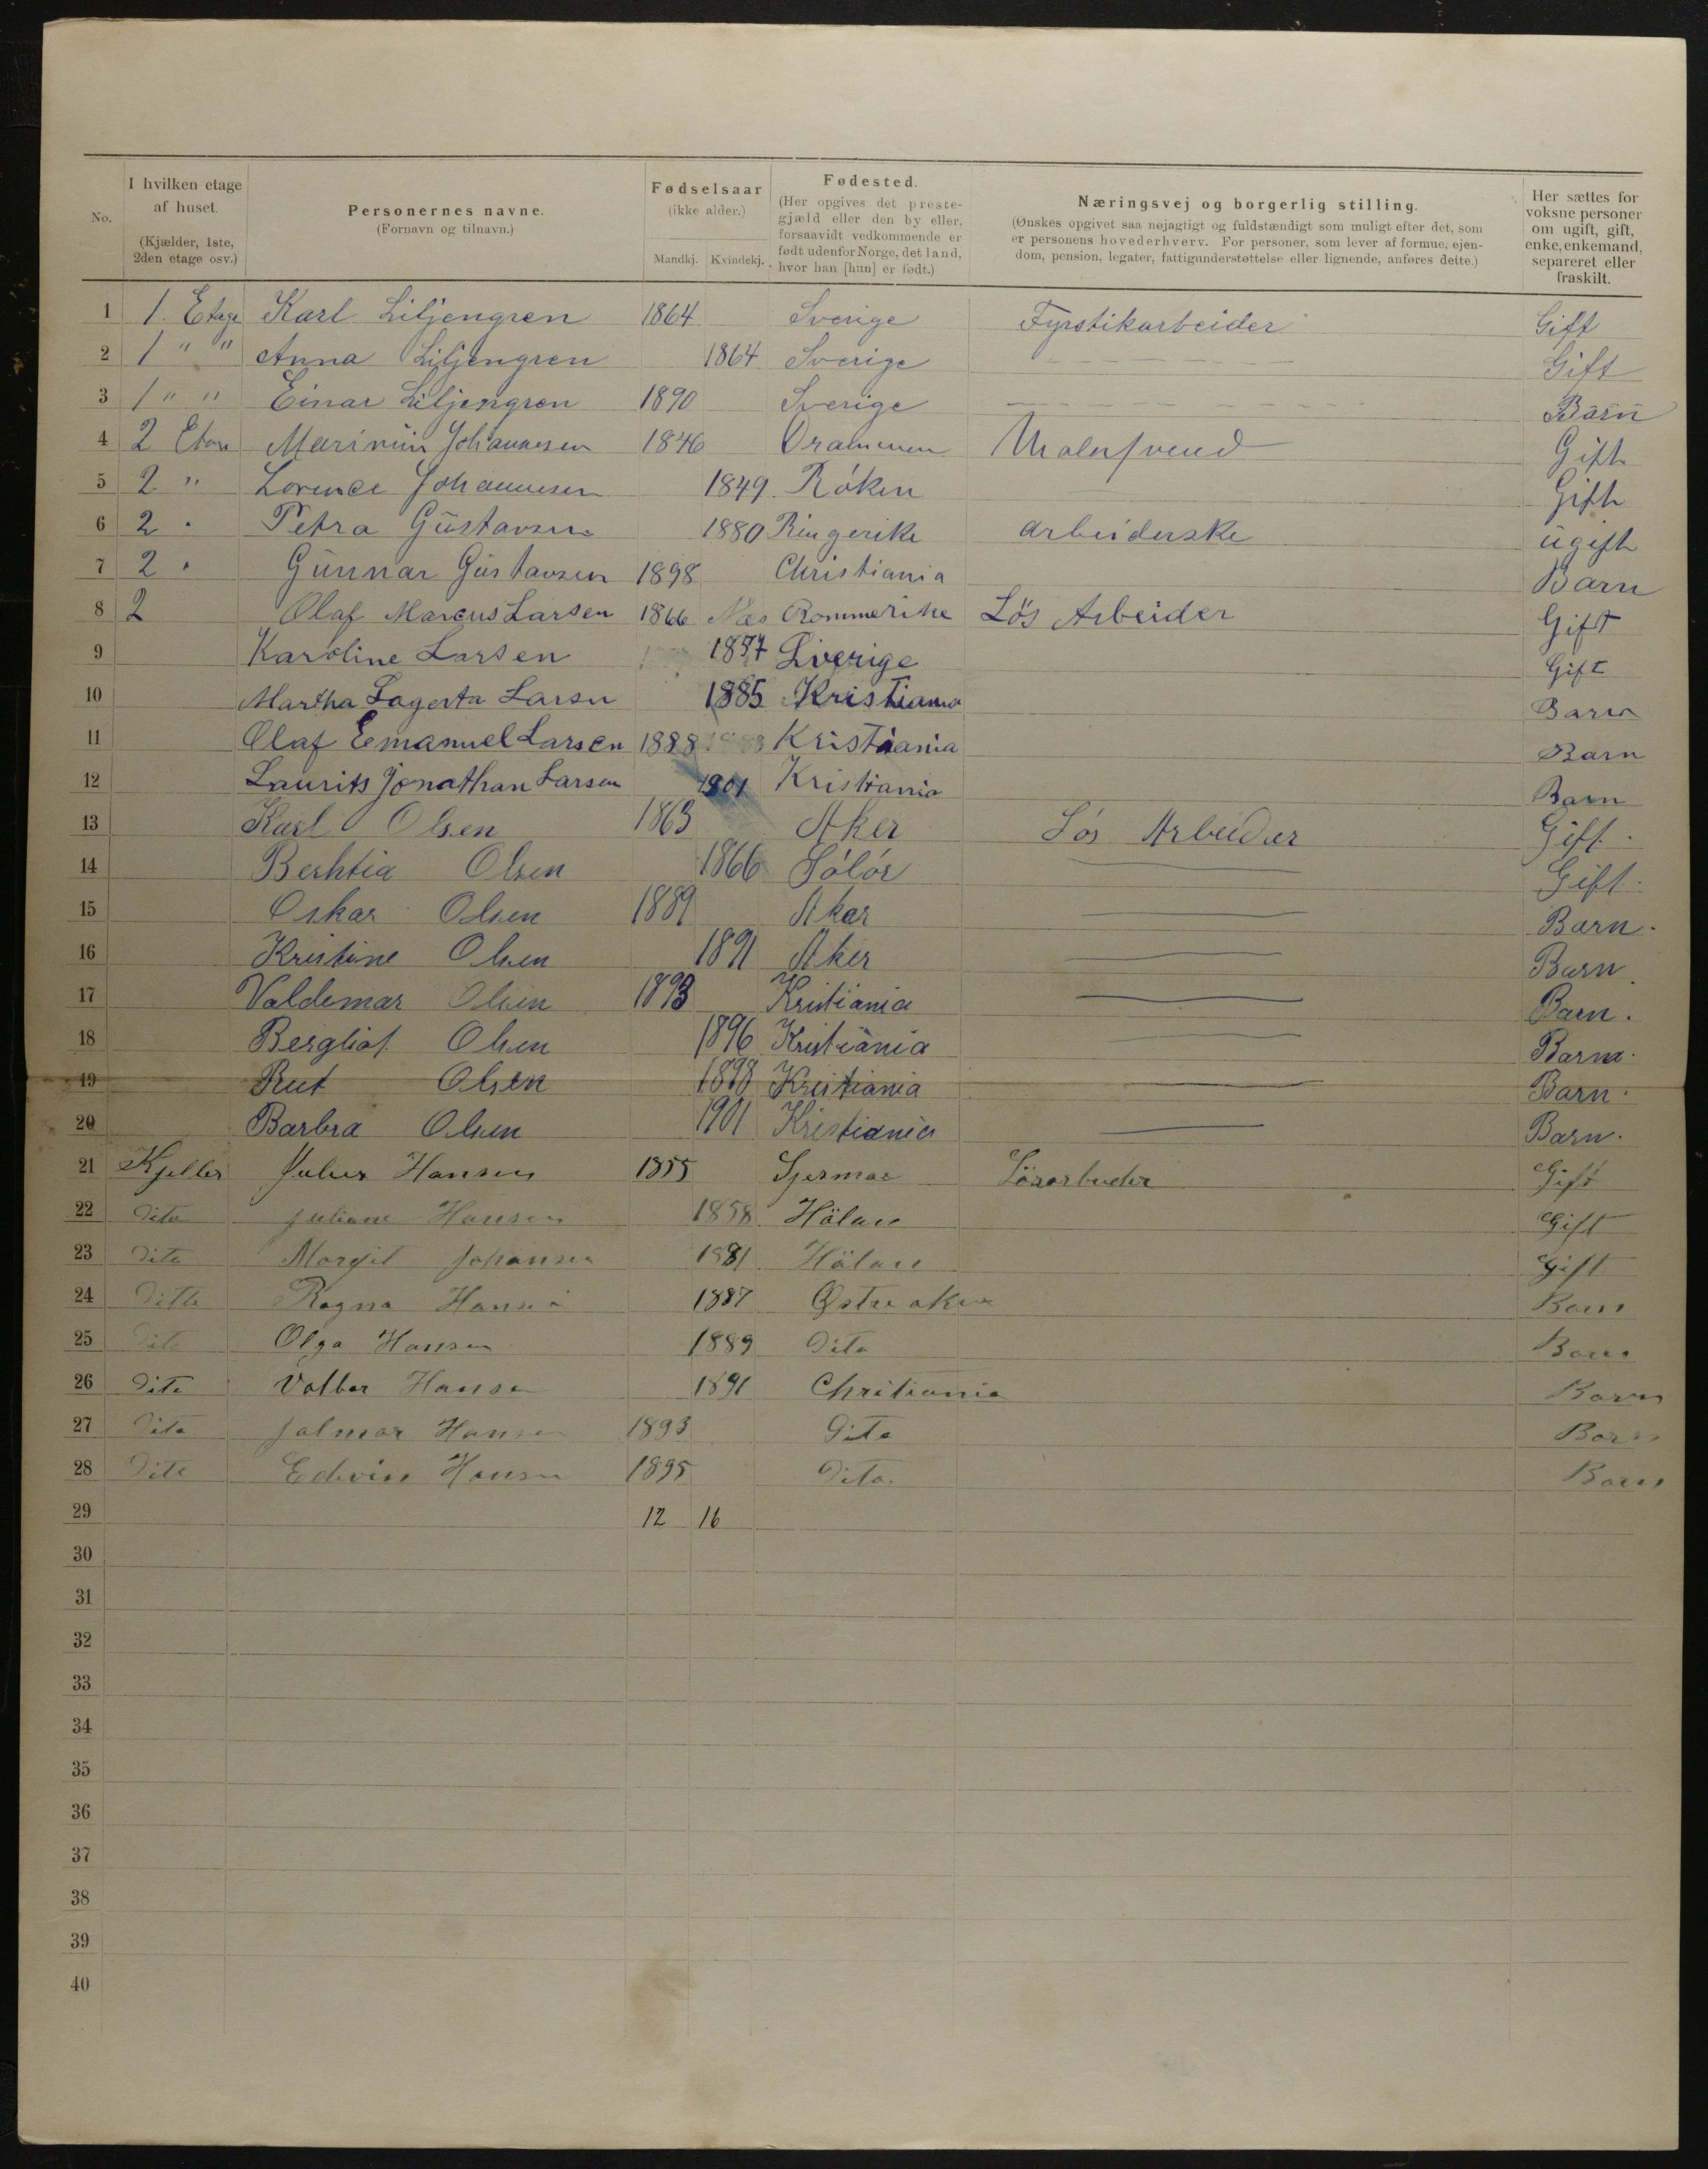 No.
I hvilken etage af huset.
(Kjælder, 1ste, 2den etage osv.)
Personernes navne.
(Fornavn og tilnavn.)
Fødselsaar
(ikke alder.)
Mandkj. Kvindekj.
Fødested.
(Her opgives det prestegjæld eller den by eller, forsaavidt vedkommende er født udenfor Norge, det land, hvor han [hun] er født.)
Næringsvej og borgerlig stilling.
(Ønskes opgivet saa nøjagtigt og fuldstændigt som muligt efter det, som er personens hovederhverv. For personer, som lever af formue, ejendom, pension, legater, fattigunderstøttelse eller lignende, anføres dette.)
Her sættes for voksne personer om ugift, gift, enke, enkemand, separeret eller fraskilt.
1 1. Etage Karl Liljengren 1864 Sverige Fyrstikarbeider Gift
2 1 " " Anna Liljengren 1864 Sverige Gift
3 1 " " Einar Liljengren 1890 Sverige Barn
4 2 Johannesen 1846 Drammen Malersvend Gift
5 2 " Lorence Johannesen 1849. Røken Gift
6 2 " Petra Gustavsen 1880 Ringerike arbeiderske ugift
7 2 " Gunnar Gustavsen 1898 Christiania Barn
8 2 Olaf Marcus Larsen 1866 Næs Rommerike Løs Arbeider Gift
9 Karoline Larsen 1857 Sverige Gift
10 Martha Lagerta Larsen 1885 Kristiania Barn
11 Olaf Emanuel Larsen 1888 Kristiania Barn
12 Laurits Jonathan Larsen 1901 Kristiania Barn
13 Karl Olsen 1863 Aker Løs Arbeider Gift.
14 Olsen 1866 Sólór Gift.
15 Oskar Olsen 1889 Aker Barn.
16 Kristine Olsen 1891 Aker Barn.
17 Valdemar Olsen 1893 Kristiania Barn.
18 Bergliot Olsen 1896 Kristiania Barn.
19 Rut Olsen 1898 Kristiania Barn.
20 Barbra Olsen 1901 Kristiania Barn.
21 Kjeller Julius Hansen 1855 Løsarbeider Gift
22 Dito Juliane Hansen 1858 Hölan Gift
23 Dito Margit Johansen 1881 Hölan Gift
24 Ditto Ragna Hansen 1887 Østre aker Barn
25 Dito Olga Hansen 1889 Dito Barn
26 Dito Valbor Hansen 1891 Chritiania Barn
27 Dito Jalmar Hansen 1893 Dito Barn
28 Dito Edvin Hansen 1895 Dito. Barn
29 12 16
30
31
32
33
34
35
36
37
38
39
40